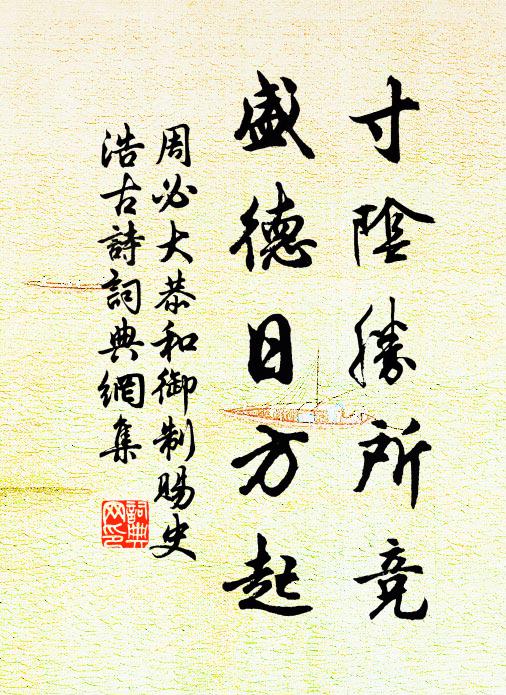 寸陰勝所竞
盛德日方起
周必大恭和御制賜史
浩古詩詞典網集
詞典
网印